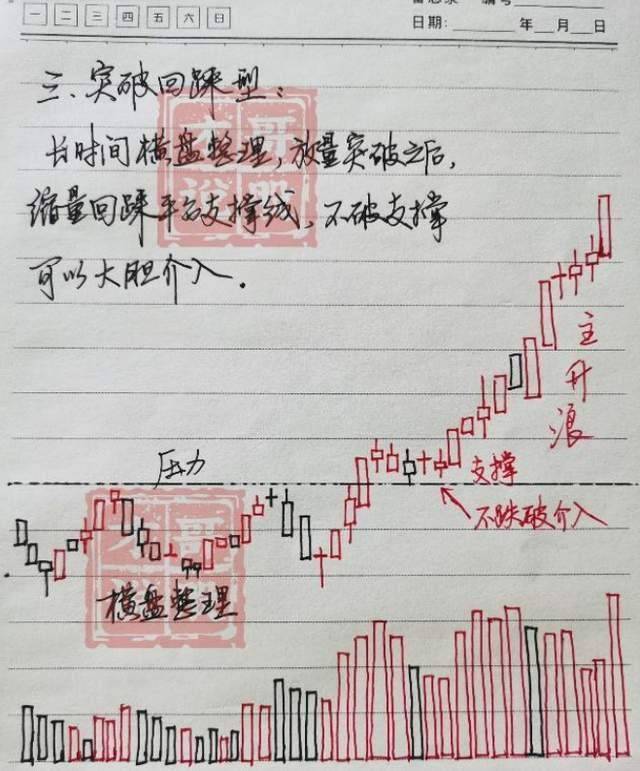 一 二 三 四 五 六 日
备忘录 编号
日期: 年 月 日
三、突破回踩型:
长时间横盘整理,放量突破之后,
缩量回踩平台支撑线,不破支撑
可以大胆介入.
主升浪
压力
支撑
不跌破介入
横盘整理